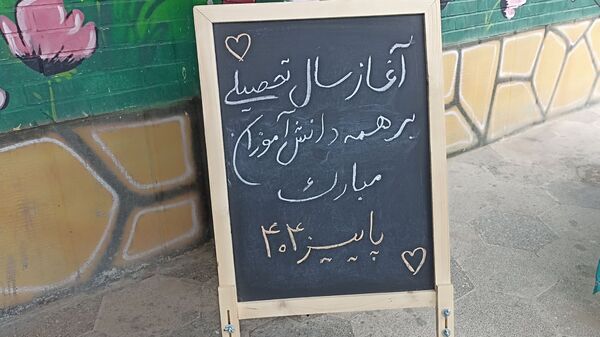 آغاز سال تحصیلی
بر همه دانش آموزان
مبارک
پاییز ۴۰۴